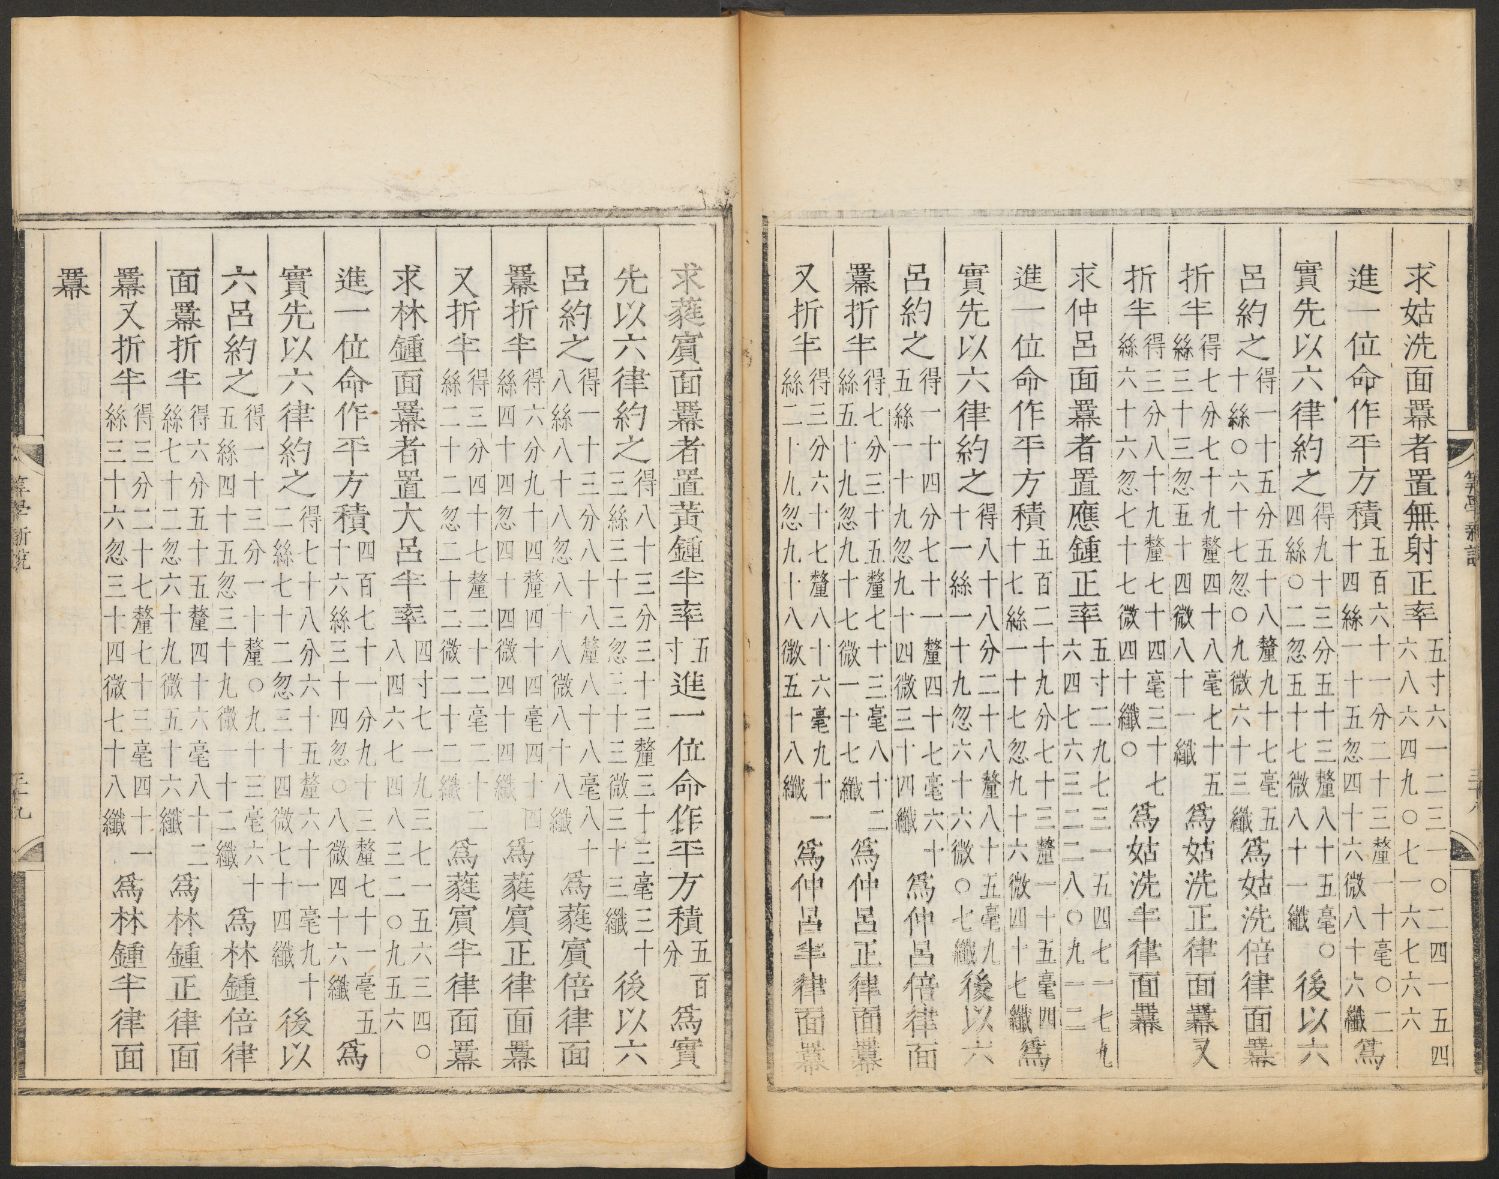 求姑洗面羃者置無射正率五寸六一二三一〇二四一五四六八六四九〇七一六七六六
進一位命作平方積五百六十一分二十三釐一十毫〇二十四絲一十五忽四十六微八十六纖爲
實先以六律約之得九十三分五十三釐八十五毫〇四絲〇二忽五十七微八十一纖後以六
呂約之得一十五分五十八釐九十七毫五十絲〇六十七忽〇九微六十三纖爲姑洗倍律面羃
折半得七分七十九釐四十八毫七十五絲三十三忽五十四微八十一纖爲姑洗正律面羃又
折半得三分八十九釐七十四毫三十七絲六十六忽七十七微四十纖〇爲姑洗半律面羃
求仲呂面羃者置應鍾正率五寸二九七三一五四七一七九六四七六三二二八〇九一二
進一位命作平方積五百二十九分七十三釐一十五毫四十七絲一十七忽九十六微四十七纖爲
實先以六律約之得八十八分二十八釐八十五毫九十一絲一十九忽六十六微〇七纖後以六
呂約之得一十四分七十一釐四十七毫六十五絲一十九忽九十四微三十四纖爲仲呂倍律面
羃折半得七分三十五釐七十三毫八十二絲五十九忽九十七微一十七纖爲仲呂正律面羃
又折半得三分六十七釐八十六毫九十一絲二十九忽九十八微五十八纖爲仲呂半律面羃
求蕤賓面羃者置黃鍾半率五寸進一位命作平方積五百分爲實
先以六律約之得八十三分三十三釐三十三毫三十三絲三十三忽三十三微三十三纖後以六
呂約之得一十三分八十八釐八十八毫八十八絲八十八忽八十八微八十八纖爲蕤賓倍律面
羃折半得六分九十四釐四十四毫四十四絲四十四忽四十四微四十四纖爲蕤賓正律面羃
又折半得三分四十七釐二十二毫二十二絲二十二忽二十二微二十二纖爲蕤賓半律面羃
求林鍾面羃者置大呂半率四寸七一九三七一五六三四〇八四六七四八三二〇九五六
進一位命作平方積四百七十一分九十三釐七十一毫五十六絲三十四忽〇八微四十六纖爲
實先以六律約之得七十八分六十五釐六十一毫九十二絲七十二忽三十四微七十四纖後以
六呂約之得一十三分一十釐〇九十三毫六十五絲四十五忽三十九微一十二纖爲林鍾倍律
面羃折半得六分五十五釐四十六毫八十二絲七十二忽六十九微五十六纖爲林鍾正律面
羃又折半得三分二十七釐七十三毫四十一絲三十六忽三十四微七十八纖爲林鍾半律面
羃